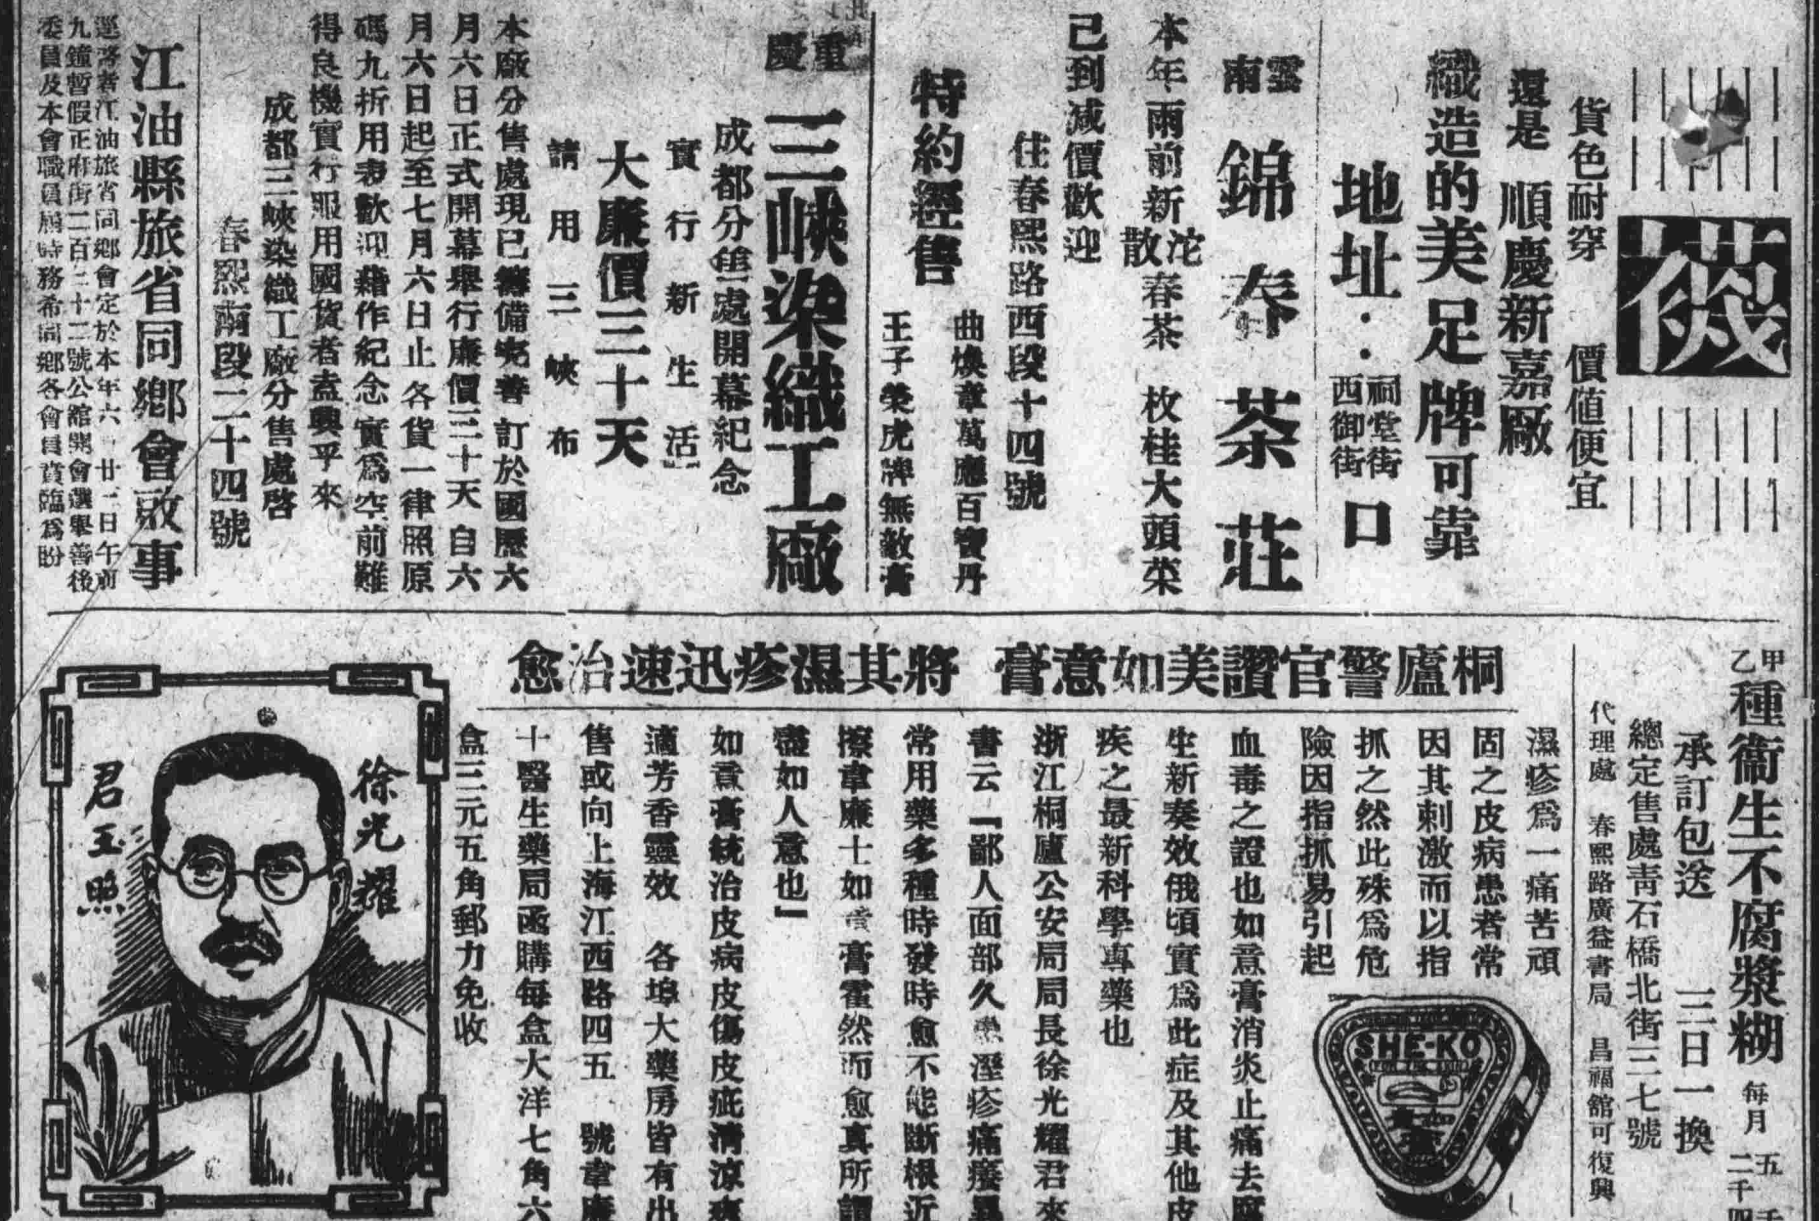 襪
貨色耐穿 價值便宜
還是 順慶新嘉廠
織造的美足牌可靠
地址：祠堂街西御街口
雲南
錦春茶莊
本年雨前新沱散春茶 枚桂大頭菜
已到減價歡迎
住春熙路西段十四號
特約經售
曲煥章萬應百寶丹
王子榮虎牌無敵膏
重慶
三峽染織工廠
成都分售處開幕紀念
實行新生活
大廉價三十天
請用三峽布
本廠分售處現已籌備完善訂於國歷六
月六日正式開幕舉行廉價三十天自六
月六日起至七月六日止各貨一律照原
碼九折用表歡迎藉作紀念實爲空前難
得良機實行服用國貨者盍興乎來
成都三峽染織工廠分售處啓
春熙南段二十四號
江油縣旅省同鄉會啟事
逕啓者江油旅省同鄉會定於本年六月廿一日午前
九鐘暫假正府街二百二十二號公館開會選舉善後
委員及本會職員屆時務希同鄉各會員賁臨爲盼
甲乙種衞生不腐漿糊 每月
承訂包送 三日一換
總定售處靑石橋北街三七號
代理處 春熙路廣益書局 昌福舘可復興
桐廬警官讚美如意膏 將其濕疹迅速治愈
濕疹爲一痛苦頑
固之皮病患者常
因其刺激而以指
抓之然此殊爲危
險因指抓易引起
血毒之證也如意膏消炎止痛去腐
生新奏效俄頃實爲此症及其他皮
疾之最新科學專藥也
浙江桐廬公安局局長徐光耀君來
書云「鄙人面部久患溼疹痛癢異
常用藥多種時發時愈不能斷根近
擦韋廉士如意膏霍然而愈眞所謂
盡如人意也」
如意膏統治皮病皮傷皮疵淸凉爽
適芳香靈效 各埠大藥房皆有出
售或向上海江西路四五 號韋廉
士醫生藥局函購每盒大洋七角六
盒三元五角郵力免收
SHE-KO
徐光耀
君玉照